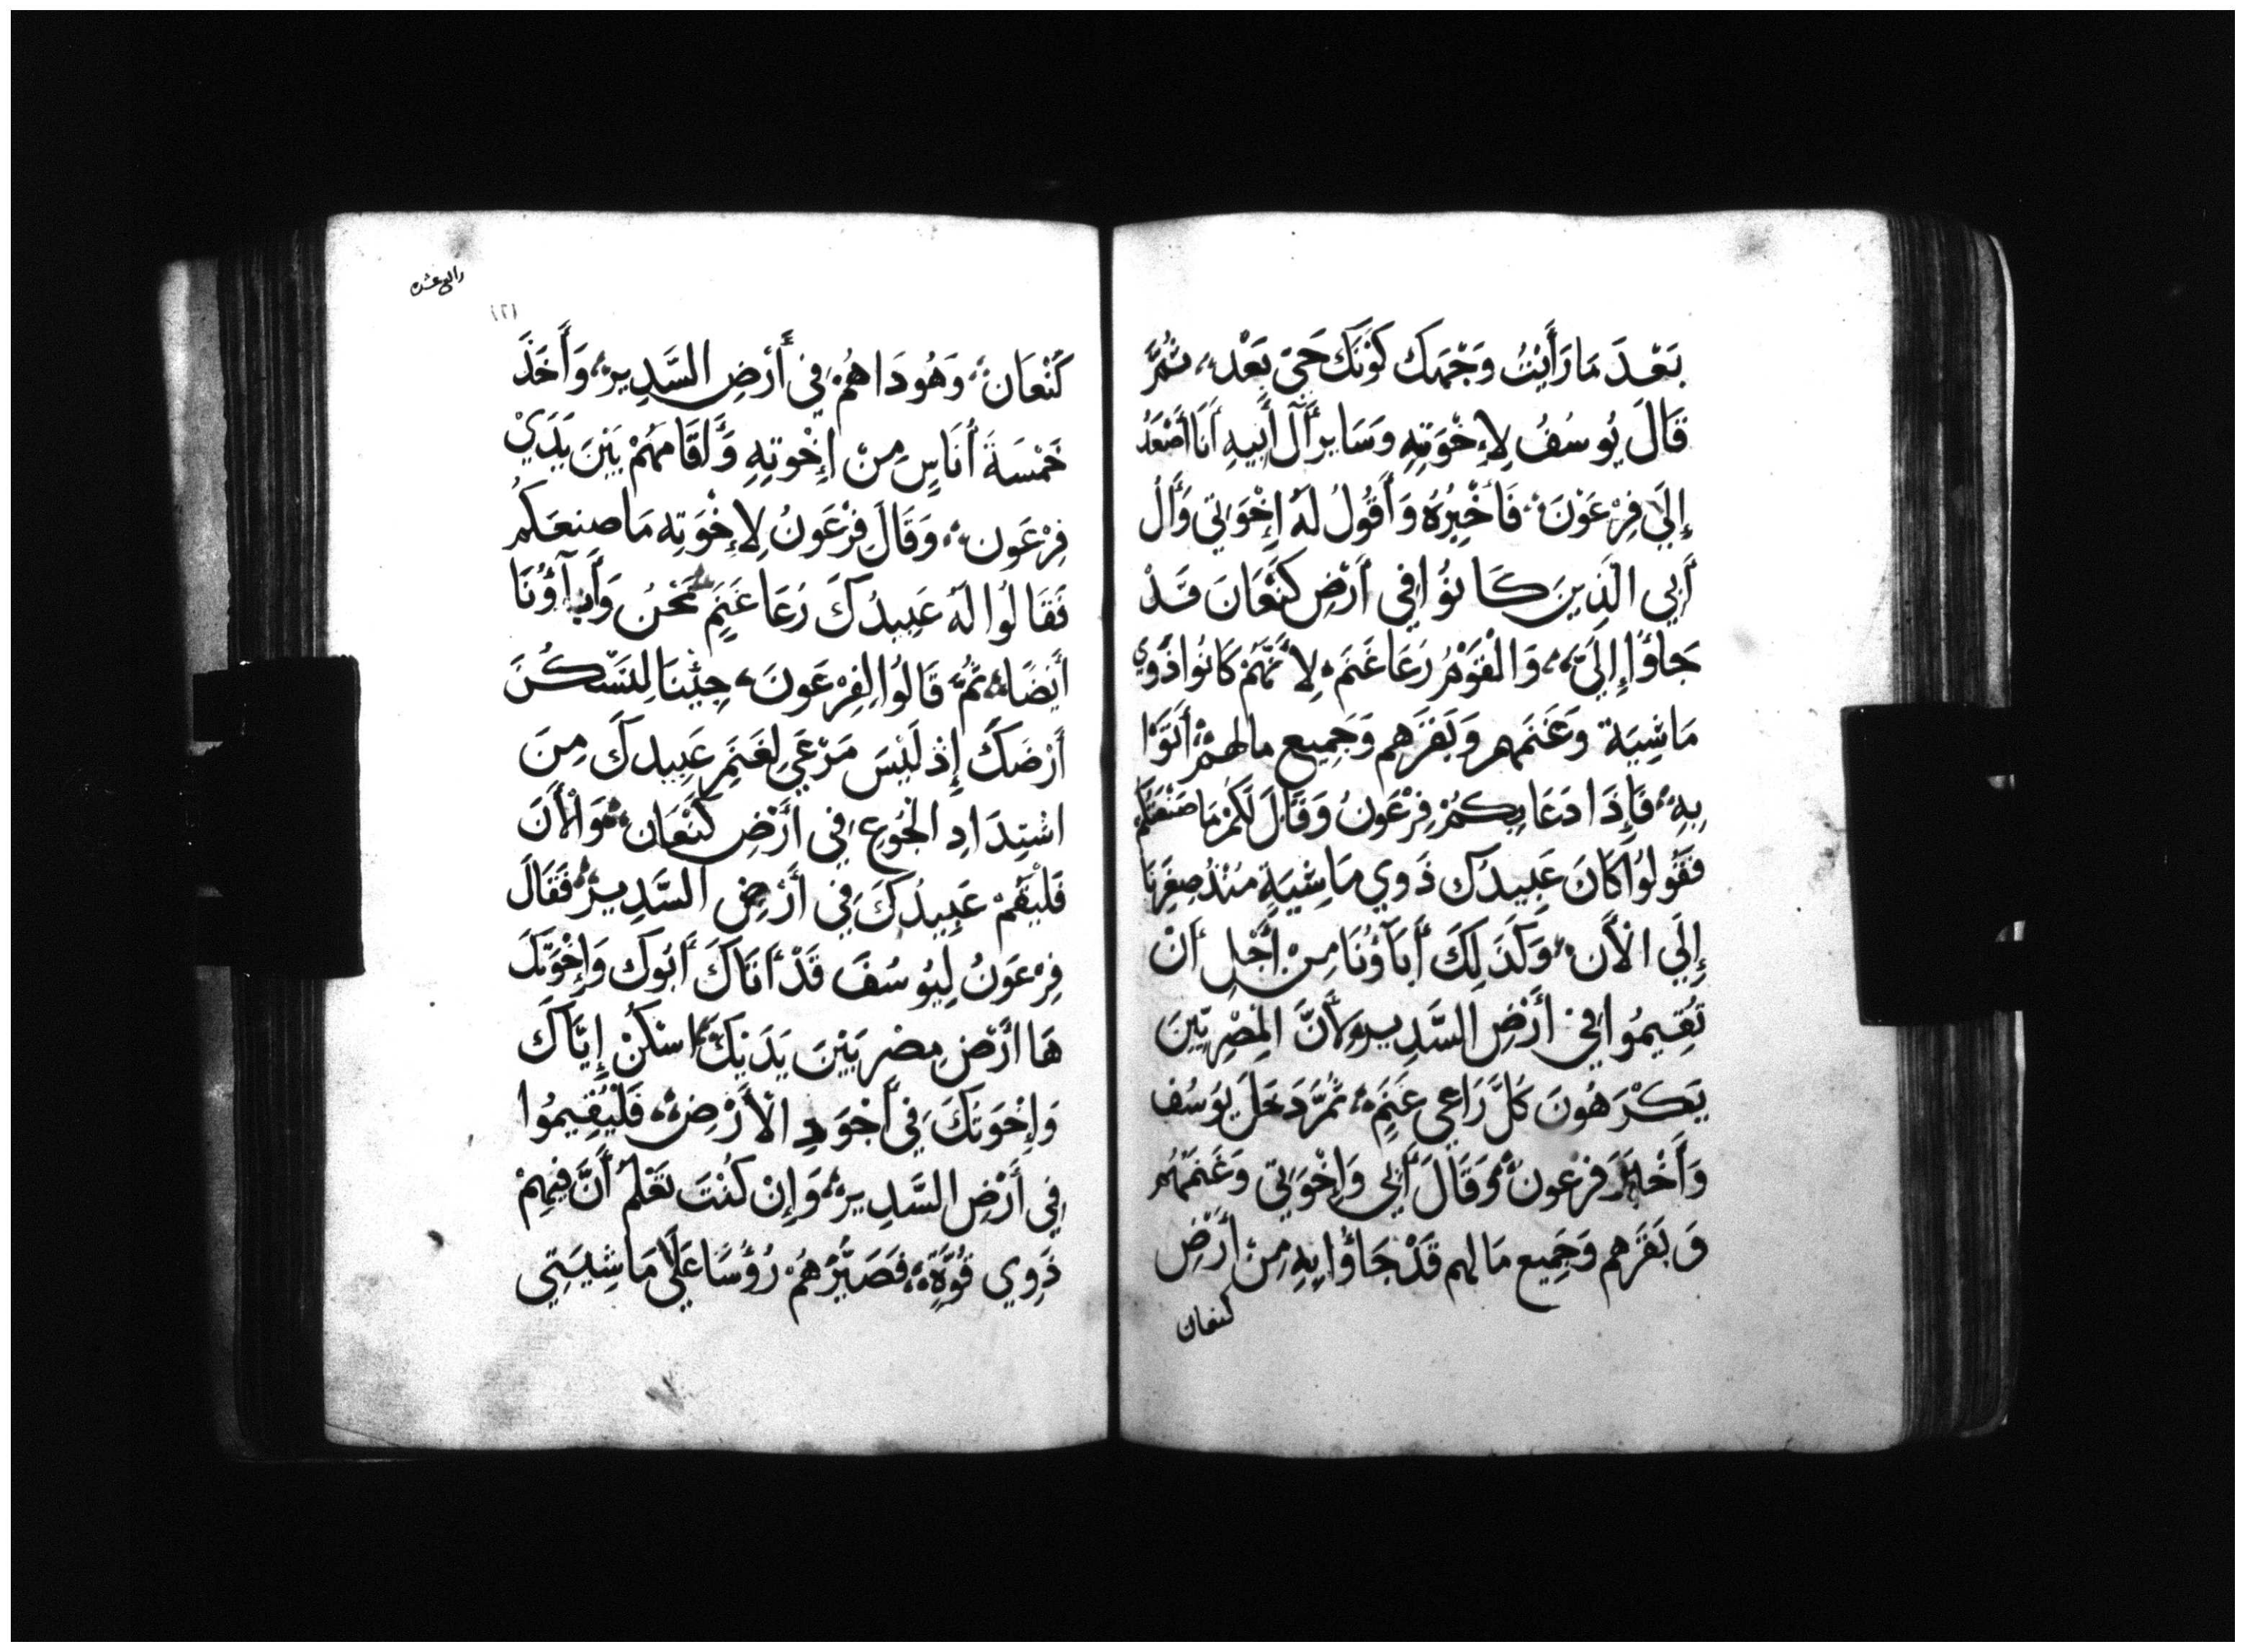 بَعْدَ مَا رَأَيْتُ وَجْهَكَ كَوْنَكَ حَيّ بَعْد، ثُمَّ
قَالَ يُوسُفُ لِإِخْوَتِهِ وَسَايِر أَلِ أَبِيهِ أَنَا أَصْعَدُ
إِلَي فِرْعَوْنَ، فَأُخْبِرُهُ وَأَقُولُ لَهُ إِخْوَتِي وَأَلُ
أَبِي الَذِينَ كَانُوا فِي أَرْضِ كَنْعَانَ قَدْ
جَاؤُا إِلَيَّ، وَالْقَوْمُ رَعَا غَنَم، لِأَنَّهُمْ كَانُوا ذَوِي
مَاشِيَة وَغَنَمهم وَبَقَرهم وَجَمِيع مالهمْ أَتَوْا
بِهِ، فَإِذَا دَعَا بِكُمْ فِرْعَوْنُ وَقَالَ لَكُمْ مَا صَنْعَتكُم
فَقُولُوا كَانَ عَبِيدُكَ ذَوِي مَاشِيَةٍ مُنْذُ صِغَرِنَا
إِلَي الْأَن، وَكَذَلِكَ أَبَاؤُنَا مِنْ أَجْلِ أَنْ
تُقِيمُوا فِي أَرْضِ السَّدِير، لِأَنَّ المِصْرِيِّينَ
يَكْرَهُونَ كُلَّ رَاعِي غَنَمٍ، ثُمَّ دَخَلَ يُوسُف
وَأَخْبَرَ فِرْعَونُ، وَقَالَ أَبِي وَإِخْوَتِي وَغَنَمُهُم
وَبَقَرهم وَجَمِيع مَالهم قَدْ جَاؤُا بِهِ مِنْ أَرْض
كنعان
رابع عشره
كَنْعَان، وَهُوذَا هُمْ فِي أَرْضِ السَّدِير، وَأَخَذَ
خَمْسَةَ أُنَاسٍ مِنْ إِخْوتِهِ وَأَقَامَهُمْ بَيْنَ يَدَيْ
فِرْعَون، وَقَالَ فِرْعَوْنُ لِإِخْوَتِه مَا صنعَكُم
فَقَالُوا لَهُ عَبِيدُكَ رُعَا غَنَمٍ نَحْنُ وَأَبآؤُنَا
أَيْضًا، ثُمَّ قَالُوا لِفِرْعَونَ، جِئْنَا لِنَسْكُنَ
أَرْضَكَ إِذْ لَيْسَ مَرْعَي لِغَنَمِ عَبِيدكَ مِنَ
اشْتِدَادِ الْجُوعِ فِي أَرْضِ كَنْعَان، وَالْأَنَ
فَلْيُقَمْ عَبِيدُكَ فِي أَرْضِ السَّدِير، فَقَالَ
فِرْعَونُ لِيُوسُفَ قَدْ أَتَاكَ أَبُوكَ وَإِخْوَتكَ
هَا أَرْضُ مِصْر بَيْنَ يَدَيْكَ، اسْكُنْ إِيَّاكَ
وَإِخْوَتكَ فِي أَجْوَدِ الْأَرْضِ، فَلْيُقِيمُوا
فِي أَرْضِ السَّدِير، وَإِنْ كُنْتَ تَعْلَمُ أَنَّ فِيهِمْ
ذَوِي قُوَّةٍ، فَصَيِّرْهُمْ رُؤُسًا عَلَي مَاشِيَتِي